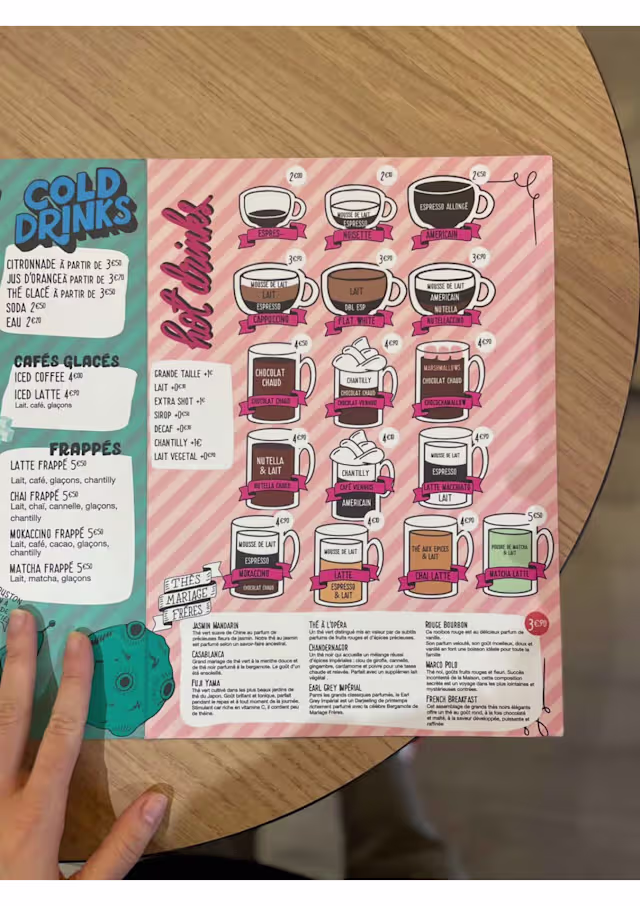 COLD
DRINKS
CITRONNADE À PARTIR DE 3€50
JUS D'ORANGE À PARTIR DE 3€70
THÉ GLACÉ À PARTIR DE 3€50
SODA 2€50
EAU 2€20
CAFÉS GLACÉS
ICED COFFEE 4€00
ICED LATTE 4€90
Lait, café, glaçons
FRAPPÉS
LATTE FRAPPÉ 5€50
Lait, café, glaçons, chantilly
CHAI FRAPPÉ 5€50
Lait, chaï, cannelle, glaçons,
chantilly
MOKACCINO FRAPPÉ 5€50
Lait, café, cacao, glaçons,
chantilly
MATCHA FRAPPÉ 5€50
Lait, matcha, glaçons
hot drinks
GRANDE TAILLE +1€
LAIT
EXTRA SHOT +1€
SIROP +0€50
DECAF
CHANTILLY +1€
LAIT VEGETAL
ESPRES
MOUSSE DE LAIT
ESPRESSO
NOISETTE
2€50
ESPRESSO ALLONGÉ
AMERICAIN
3€90
MOUSSE DE LAIT
LAIT
ESPRESSO
CAPPUCCINO
3€90
LAIT
DBL ESP
FLAT WHITE
3€90
MOUSSE DE LAIT
AMERICAIN
NUTELLA
NUTELLACCINO
4€50
CHOCOLAT
CHAUD
CHOCOLAT CHAUD
4€90
CHANTILLY
CHOCOLAT
CHAUD
CHOCOLAT VIENNOIS
4€90
MARSHMALLOWS
CHOCOLAT CHAUD
CHOCOCHAMALLOW
4€90
NUTELLA
& LAIT
NUTELLA CHAUD
CHANTILLY
CAFÉ VIENNOIS
AMERICAIN
4€90
MOUSSE DE LAIT
ESPRESSO
LATTE MACCHIATO
LAIT
4€90
MOUSSE DE LAIT
ESPRESSO
MOKACCINO
CHOCOLAT CHAUD
MOUSSE DE LAIT
LATTE
ESPRESSO
& LAIT
4€90
THÉ AUX EPICES
& LAIT
CHAI LATTE
5€50
POUDRE DE MATCHA
& LAIT
MATCHA LATTE
THÉS
MARIAGE
FRÈRES
3€90
JASMIN MANDARIN
Thé vert suave de Chine au parfum de
précieuses fleurs de jasmin. Notre thé au jasmin
est parfumé selon un savoir-faire ancestral.
CASABLANCA
Grand mariage de thé vert à la menthe douce et
de thé noir parfumé à la bergamote. Le goût d'un
été ensoleillé.
FUJI YAMA
Thé vert cultivé dans les plus beaux jardins de
thé du Japon. Goût brillant et tonique, parfait
pendant le repas et à tout moment de la journée.
Stimulant car riche en vitamine C, il contient peu
de théine.
THÉ À L'OPÉRA
Un thé vert distingué mis en valeur par de subtils
parfums de fruits rouges et d'épices précieuses.
CHANDERNAGOR
Un thé noir qui accueille un mélange réuni
d'épices impériales : clou de girofle, cannelle,
gingembre, cardamome et poivre pour une tasse
chaude et relevée. Parfait avec un supplément lait
végétal .
EARL GREY IMPÉRIAL
Parmi les grands classiques parfumés, le Earl
Grey Impérial est un Darjeeling de printemps
richement parfumé avec la célèbre Bergamote de
Mariage Frères.
ROUGE BOURBON
Ce rooibos rouge est au délicieux parfum de
vanille.
Son parfum velouté, son goût moelleux, doux et
vanillé en font une boisson idéale pour toute la
famille
MARCO POLO
Thé noi, goûts fruits rouges et fleuri. Succès
incontesté de la Maison, cette composition
secrète est un voyage dans les plus lointaines et
mystérieuses contrées.
FRENCH BREAKFAST
Cet assemblage de grands thés noirs élégants
offre un thé au goût rond, à la fois chocolaté
et malté, à la saveur développée, puissante et
raffinée